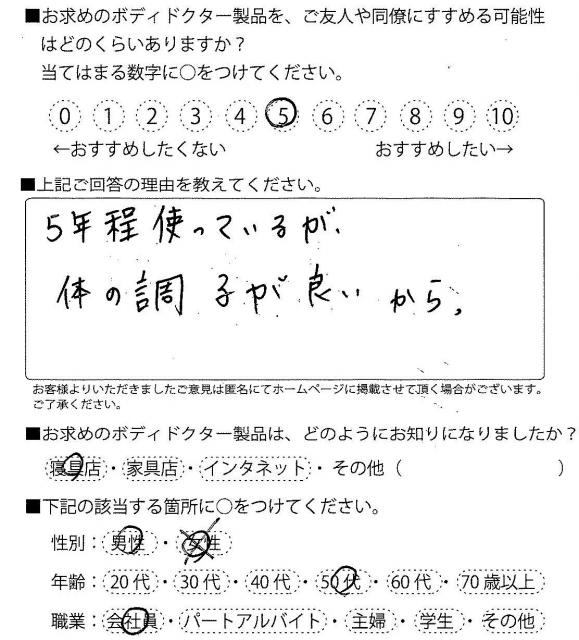 ■お求めのボディドクター製品を、ご友人や同僚にすすめる可能性
はどのくらいありますか？
当てはまる数字に○をつけてください。
0 1 2 3 4 5 6 7 8 9 10
←おすすめしたくない おすすめしたい→
■上記ご回答の理由を教えてください。
5年程使っているが、
体の調子が良いから。
お客様よりいただきましたご意見は匿名にてホームページに掲載させて頂く場合がございます。
ご了承ください。
■お求めのボディドクター製品は、どのようにお知りになりましたか？
寝具店・家具店・インタネット・その他（ ）
■下記の該当する箇所に○をつけてください。
性別：男性・女性
年齢：20代・30代・40代・50代・60代・70歳以上
職業：会社員・パートアルバイト・主婦・学生・その他